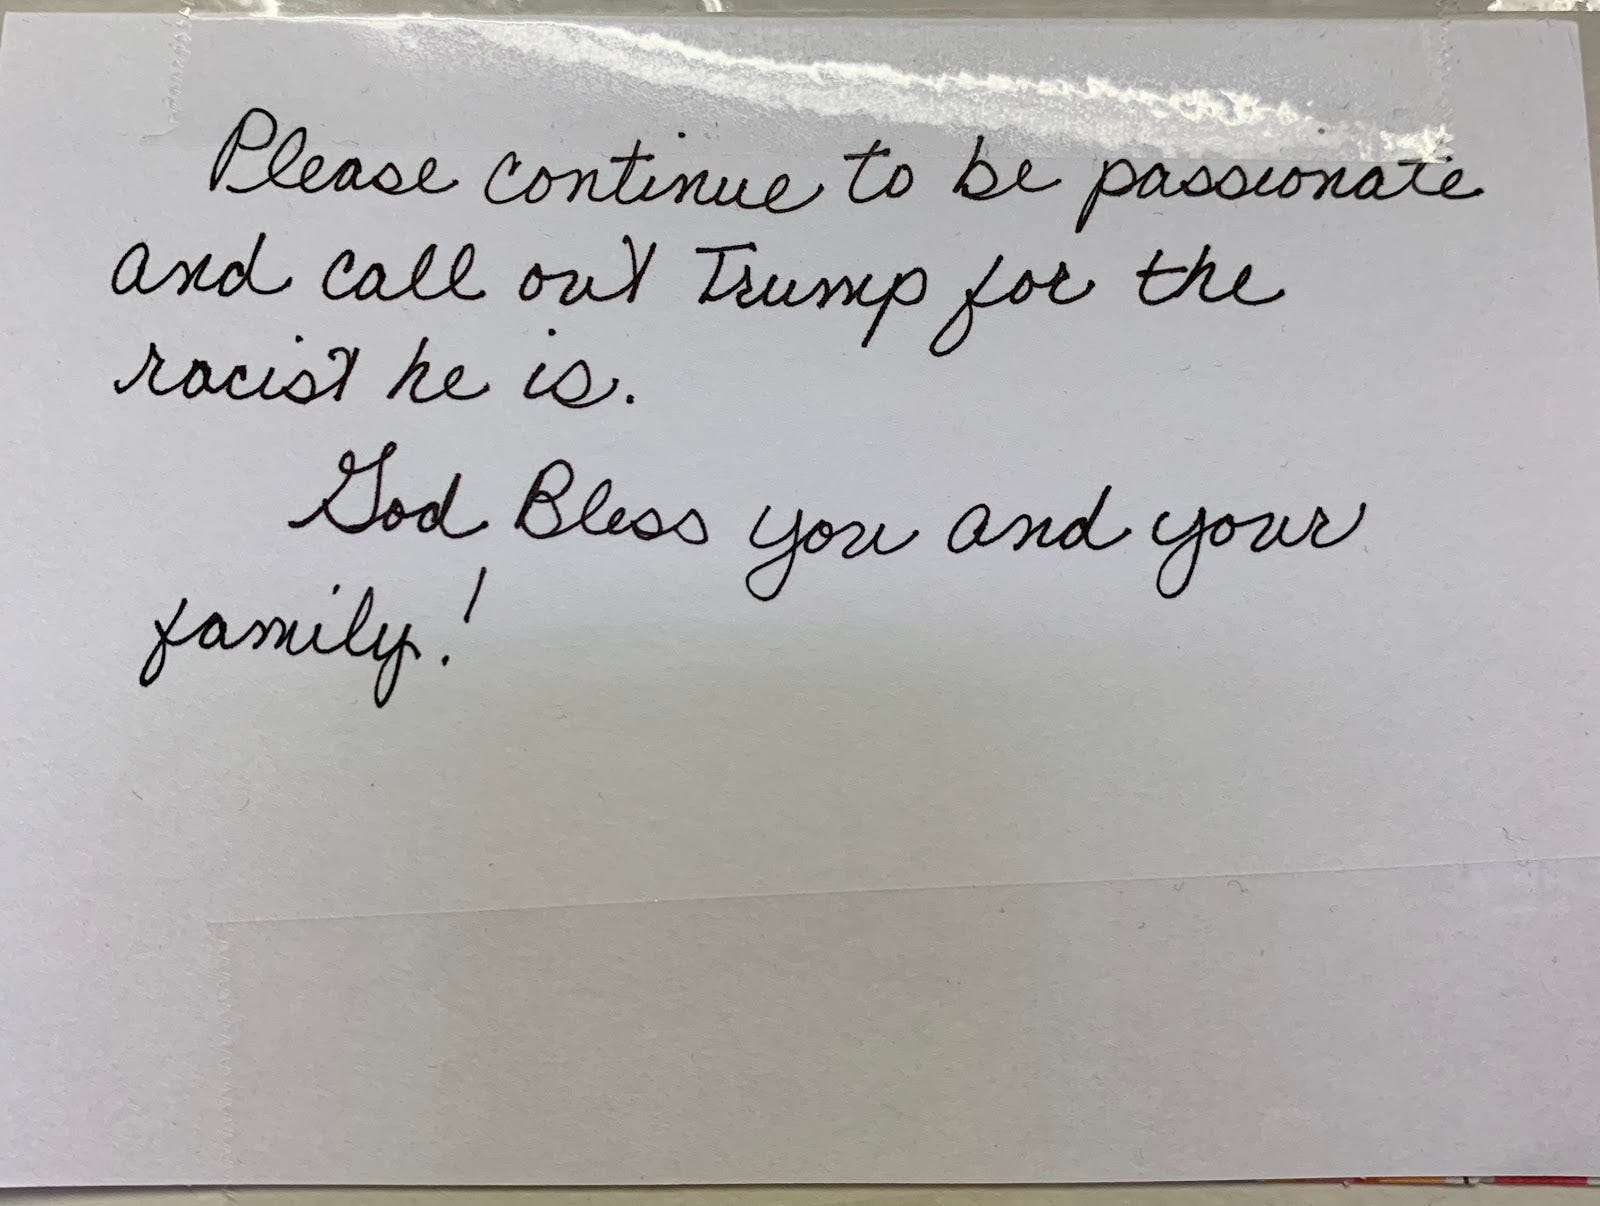 Please continue to be passionate
and call out Trump for the
racist he is.
God Bless you and your
family!